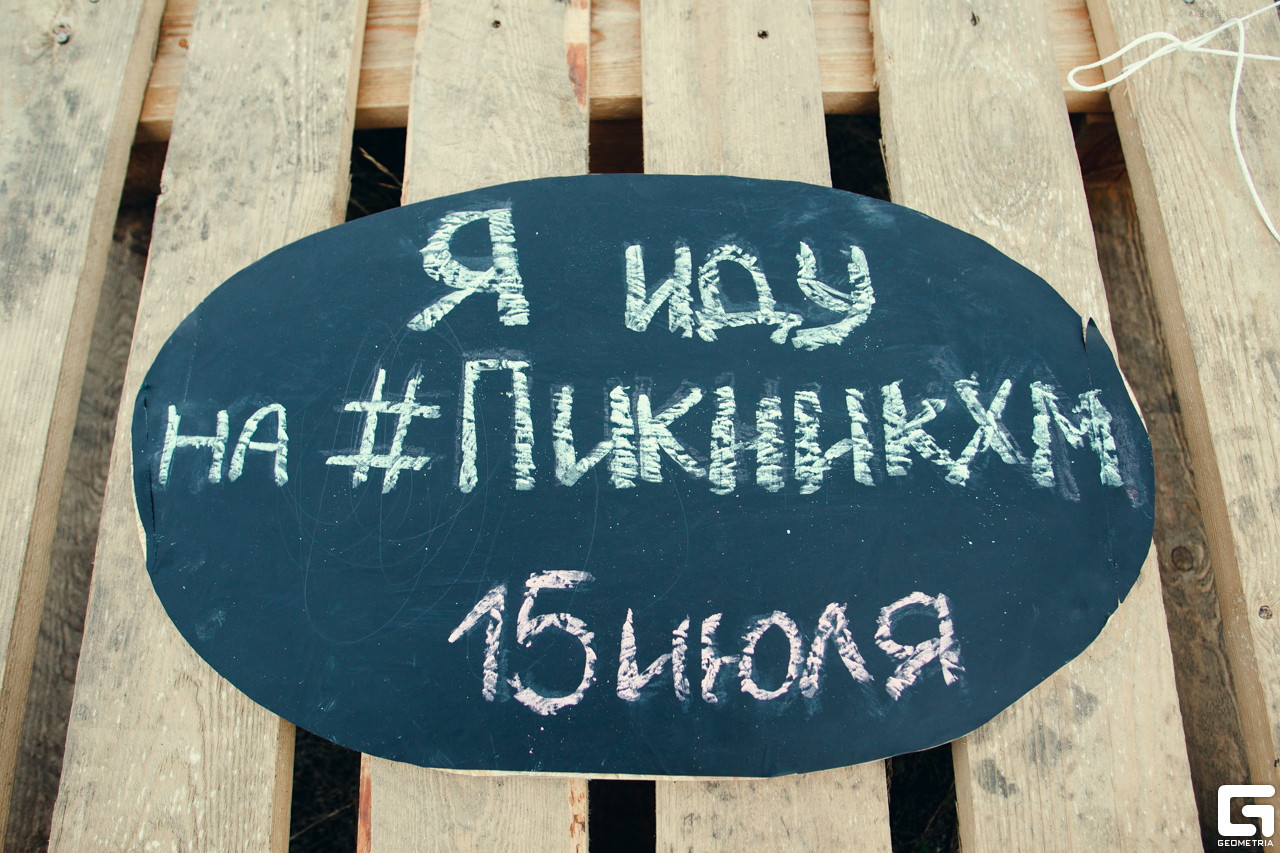 Я иду
на #ПикникХМ
15 июля
GEOMETRIA